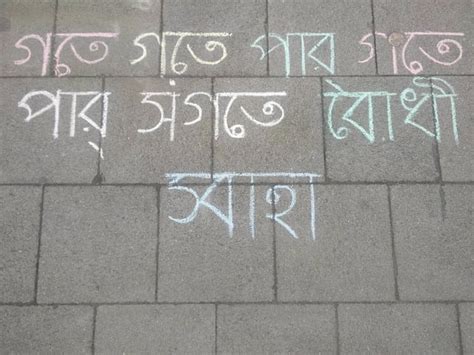 গতে গতে পার গতে
পার্ সংগতে বৌধী
স্বাহা